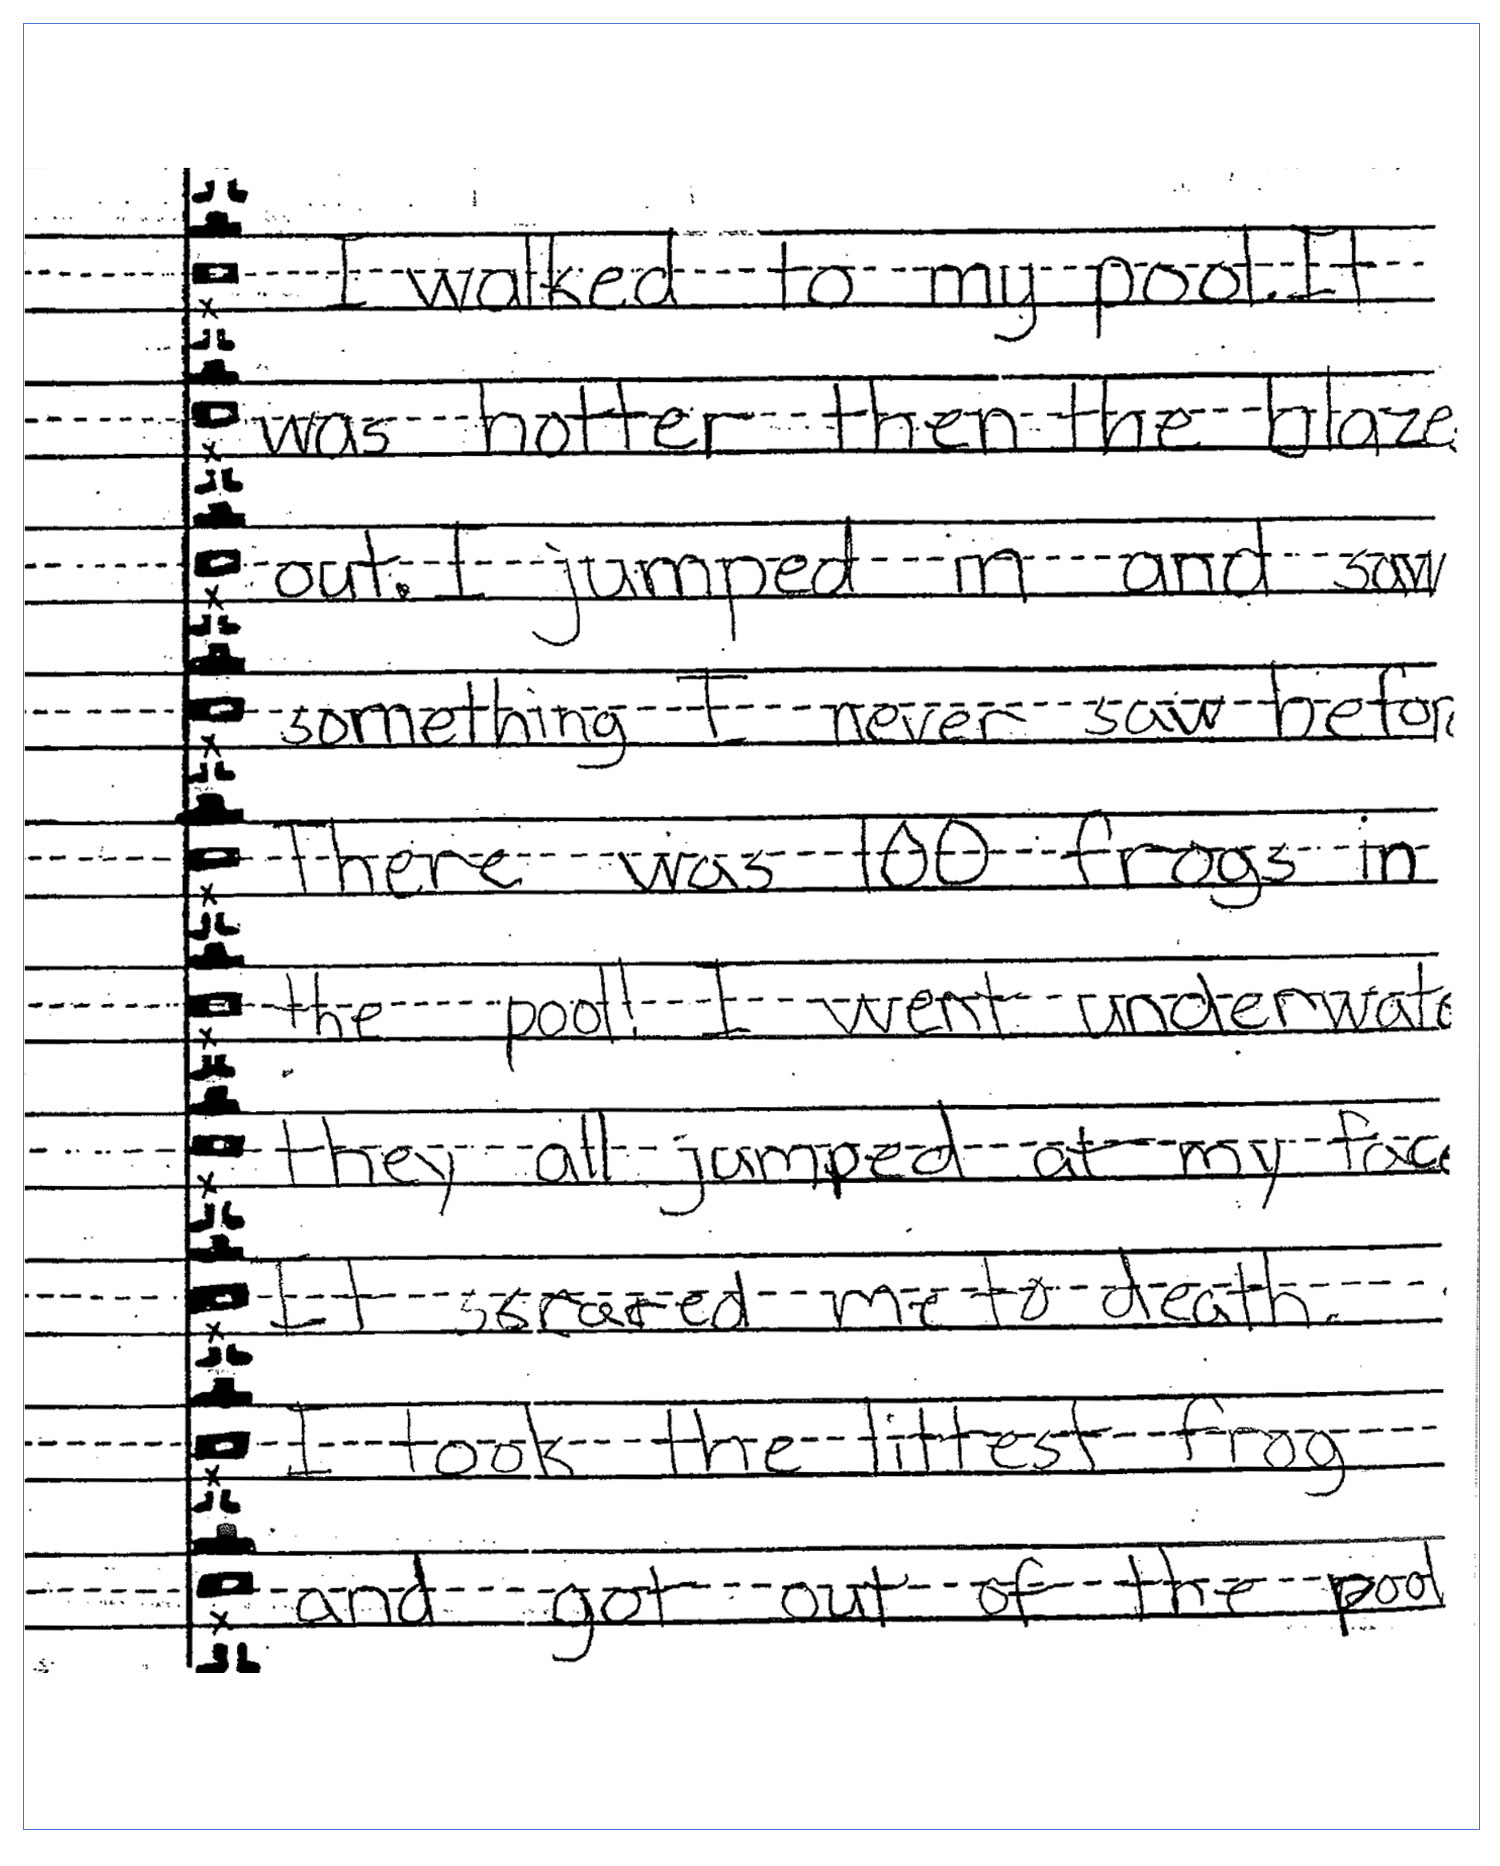 I walked to my pool. It
was hotter then the blaze
out. I jumped in and saw
something I never saw before
There was 100 frogs in
the pool! I went underwate
they all jumped at my face
It scrared me to death.
I took the littest frog
and got out of the pool